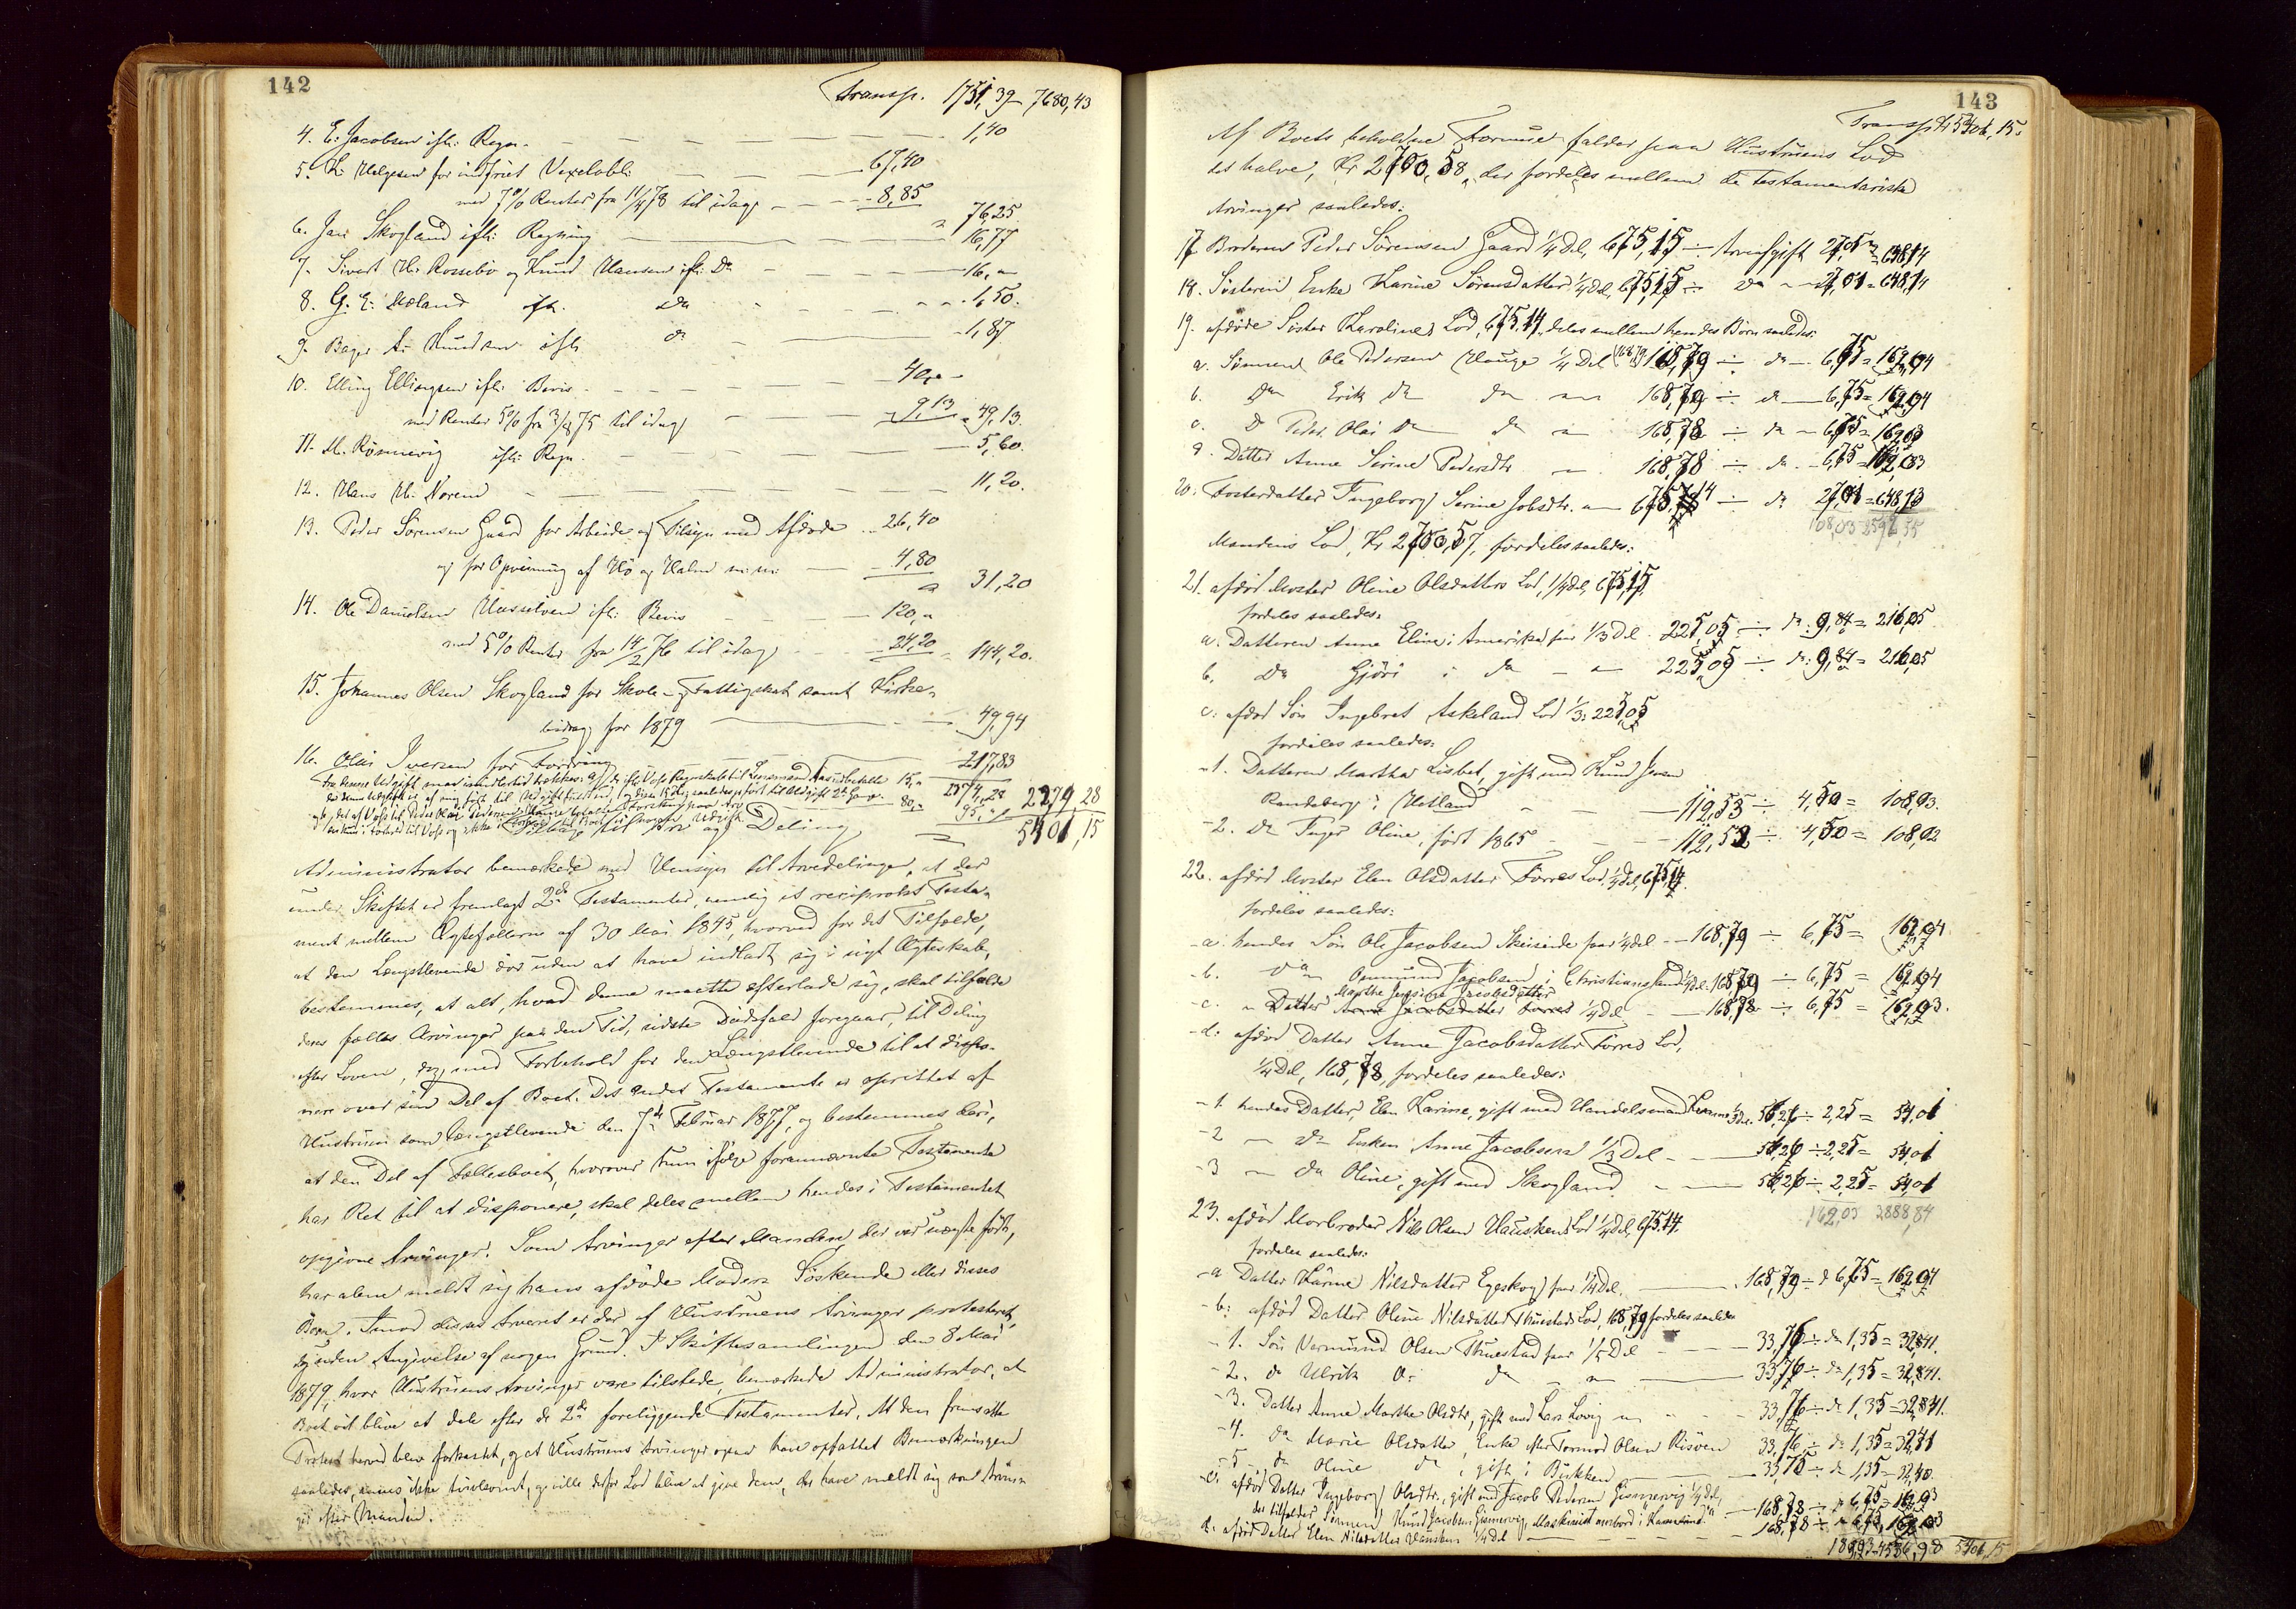 142
Transp. 1751,39 7680,43
4. E. Jacobsen iflg: Regn. 1,40
5. K. Helgesen for indfriet Vexelobl: 67,40
med 7% Renter fra 11/4 78 til idag 8,85
" 76,25
6. Jan Skogland iflg: Regning 16,77
7. Sivert H. Rossebö og Knud Hansen iflg: Do 16,"
8. G. E. Mæland iflg. do 1,50.
9. Bager A. Knudsen iflg do 1,87
10. Elling Ellingsen iflg: Bevis 40,"
med Renter 5% fra 3/8 75 til idag 9,13 " 49,13.
11. M. Rönnevig iflg: Regn. 5,60.
12. Hans H. Norem 11,20.
13. Peder Sörensen Gaard for Arbeide og Tilsyn med Afdøde 26,40
og for Opveining af Hö og Halm m.m. 4,80
" 31,20
14. Ole Danielsen Hasselven iflg: Bevis 120,"
med 5% Renter fra 14/2 76 til idag 24,20 " 144,20.
15. Johannes Olsen Skogland for Skole- og Fattigskat samt Kirke-
bidrag for 1879 49,94
16. Olai Iversen for Fordring 217,83
2374,28
95,"
2279,28
Tilbage til Arv og Deling 5401,15
Administrator bemærkede med Hensyn til Arvedelingen, at der
under Skiftet er fremlagt 2de Testamenter, nemlig et reciprokt Testa-
ment mellem Ægtefællerne af 30 Mai 1845, hvorved for det Tilfælde,
at den Længstlevende dör uden at have indladt sig i nyt Ægteskab,
bestemmes, at alt, hvad denne maatte efterlade sig, skal tilfalde
deres fælles Arvinger paa den Tid, sidste Dödsfald foregaar, til Deling
efter Loven, dog med Forbehold for den Længstlevende til at dispo-
nere over sin Del af Boet. Det andet Testamente er oprettet af
Hustruen som længstlevende den 7de Februar 1877, og bestemmes deri,
at den Del af Fællesboet, hvorover hun ifölge forannævnte Testamente
har Ret til at disponere, skal deles mellem hendes i Testamentet
opgivne Arvinger. Som Arvinger efter Manden, der var uægte födt,
har alene meldt sig hans afdöde Moders Söskende eller disses
Börn. Imod disses Arveret er der af Hustruens Arvinger protesteret,
dog uden Angivelse af nogen Grund. I Skiftesamlingen den 8 Mai
1879, hvor Hustruens Arvinger vare tilstede, bemærkede Administrator, at
Boet vil blive at dele efter de 2de foreliggende Testamenter. At den fremsatte
Protest herved blev forkastet, og at Hustruens Arvinger ogsaa have opfattet Bemærkningen
saaledes, synes ikke tvivlsomt, og ville derfor Lod blive at give dem, der have meldt sig som Arvin-
ger efter Manden.
143
Transp. Kr 5401,15.
Af Boets beholdne Formue falder paa Hustruens Lod
det halve, Kr 2700,58, der fordeles mellem de testamentariske
Arvinger saaledes:
17. Broderen Peder Sörensen Gaard 1/4 Del, 675,15 ÷ Arveafgift 27,01 = 648,14
18. Søsteren Enke Karine Sörensdatter 1/4 Del, 675,15 ÷ do 27,01 = 648,14
19. afdöde Söster Karolines Lod, 675,14, deles mellem hendes Börn saaledes:
a. Sönnen Ole Pedersen Hauge 1/4 Del 168,79 ÷ do 6,75 = 162,04
b. do Erik do do " 168,79 ÷ do 6,75 = 162,04
c. do Peder Olai do do " 168,78 ÷ do 6,75 = 162,03
d. Datter Anne Serine Pedersdtr. " 168,78 ÷ do 6,75 = 162,03
20. Fosterdatter Ingeborg Serine Jobsdtr. " 675,14 ÷ do 27,01 = 648,13
108,03 2592,55
Mandens Lod, Kr 2700,57, fordeles saaledes:
21. afdöd Moster Oline Olsdatters Lod, 1/4 Del, 675,15,
fordeles saaledes:
a. Datteren Anne Eline i Amerika faar 1/3 Del 225,05 ÷ do 9,"= 216,05
b. do Gjöri i do " 225,05 ÷ do 9," = 216,05
c. afdöd Sön Ingebret Askeland Lod 1/3: 225,05
fordeles saaledes:
1. Datteren Martha Lisbet, gift med Knud Jensen
Randeberg i Hetland 112,53 ÷ 4,50 = 108,03.
2. do Inger Oline, födt 1865 112,52 ÷ 4,50 = 108,02
22. afdöd Moster Elen Olsdatter Förres Lod, 1/4 Del, 675,14.
fordeles saaledes:
a. hendes Sön Ole Jacobsen Skeiseide faar 1/4 Del 168,79 ÷ 6,75 = 162,04.
b. do Ommund Jacobsen i Christiansand 1/4 Del. 168,79 ÷ 6,75 = 162,04
c. " Datter Anne Jacobsdatter Förres 1/4 Del 168,78 ÷ 6,75 = 162,03.
d. afdöd Datter Anne Jacobsdatter Förres Lod,
1/4 Del, 168,78, fordeles saaledes:
1. hendes Datter, Elen Karine, gift med Handelsmand 1/3 Del. 56,26 ÷ 2,25 = 54,01
2 " do Enken Anne Jacobsen 1/3 Del 56,26 ÷ 2,25 = 54,01
3 " do Oline, gift med Skogland 56,26 ÷ 2,25 = 54,01
162,03 3888,84
23. afdöd Morbroder Nils Olsen Hauskens Lod 1/4 Del, 675,14.
fordeles saaledes:
a Datter Karine Nilsdatter Egeskog faar 1/4 Del. 168,79 ÷ do 6,75 = 162,04
b. afdöd Datter Oline Nilsdatter Thuestads Lod, 168,79 fordeles saaledes
1. Sön Vermund Olsen Thuestad faar 1/5 Del 33,76 ÷ do 1,35 = 32,41.
2. do Ulrik O. do " 33,76 ÷ do 1,35 = 32,41.
3. Datter Anne Marthe Olsdtr, gift med Lars Lovig " 33,76 ÷ do 1,35 = 32,41.
4. do Marie Olsdatter, Enke efter Tormod Olsen Risöen 33,76 ÷ do 1,35 = 32,41
5 do Oline do, gift i Bukken 33,75 ÷ do 1,35 = 32,40.
c. afdöd Datter Ingeborg Olsdtr., gift med Jacob Pedersen Gismervig 1/4 Del,
der tilfalder Sönnen Knud Jacobsen Gismervig, Maskinist ombord i "Karmsund" 168,78 ÷ do 6,75 = 162,03
d. afdöd Datter Elen Nilsdatter Hausken 1/4 Del 168,78 ÷ do 6,75, 162,03
5401,15